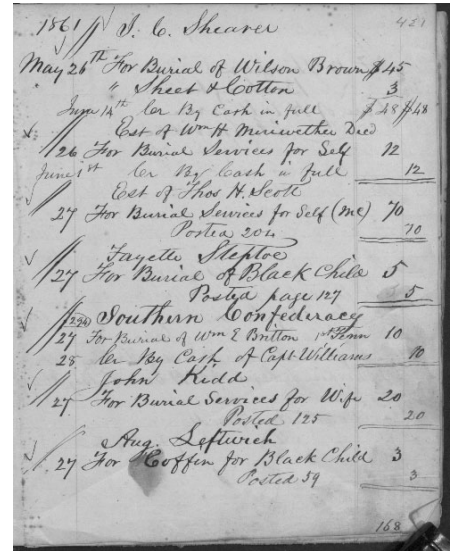 1861 // J. C. Shearer 421
May 26th For Burial of Wilson Brown $45
" Sheet & Cotton 3
June 14th Cr By Cash in full $48 $48
Est of Wm H. Miriwether Died
26 For Burial Services for Self 12
June 1st Cr By Cash in full 12
Est of Thos H. Scott
27 For Burial Services for Self (Mc) 70
Posted 204 70
Fayette Steptoe
27 For Burial of Black Child 5
Posted page 127 5
294 Southern Confederacy
27 For Burial of Wm E Britton 1st Tenn 10
28 Cr By Cash of Capt Williams 10
John Kidd
27 For Burial Services for Wife 20
Posted 125 20
Aug. Leftwich
27 For Coffin for Black Child 3
Posted 59 3
168